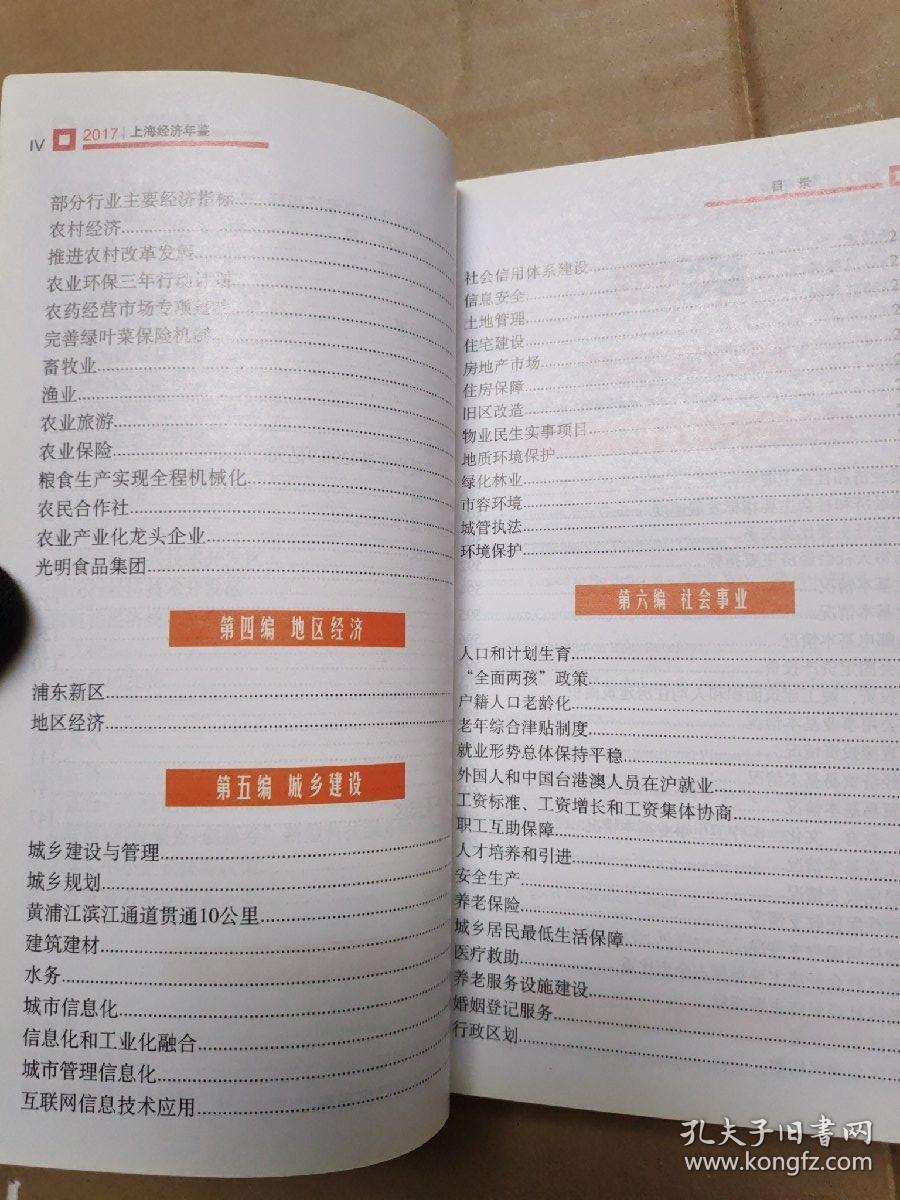 IV 2017 上海经济年鉴
部分行业主要经济指标
农村经济
推进农村改革发展
农业环保三年行动计划
农药经营市场专项
完善绿叶菜保险机制
畜牧业
渔业
农业旅游
农业保险
粮食生产实现全程机械化
农民合作社
农业产业化龙头企业
光明食品集团
第四编 地区经济
浦东新区
地区经济
第五编 城乡建设
城乡建设与管理
城乡规划
黄浦江滨江通道贯通10公里
建筑建材
水务
城市信息化
信息化和工业化融合
城市管理信息化
互联网信息技术应用
目 录
社会信用体系建设
信息安全
土地管理
住宅建设
房地产市场
住房保障
旧区改造
物业民生实事项目
地质环境保护
绿化林业
市容环境
城管执法
环境保护
第六编 社会事业
人口和计划生育
“全面两孩”政策
户籍人口老龄化
老年综合津贴制度
就业形势总体保持平稳
外国人和中国台港澳人员在沪就业
工资标准、工资增长和工资集体协商
职工互助保障
人才培养和引进
安全生产
养老保险
城乡居民最低生活保障
医疗救助
养老服务设施建设
婚姻登记服务
行政区划
孔夫子旧书网
www.kongfz.com